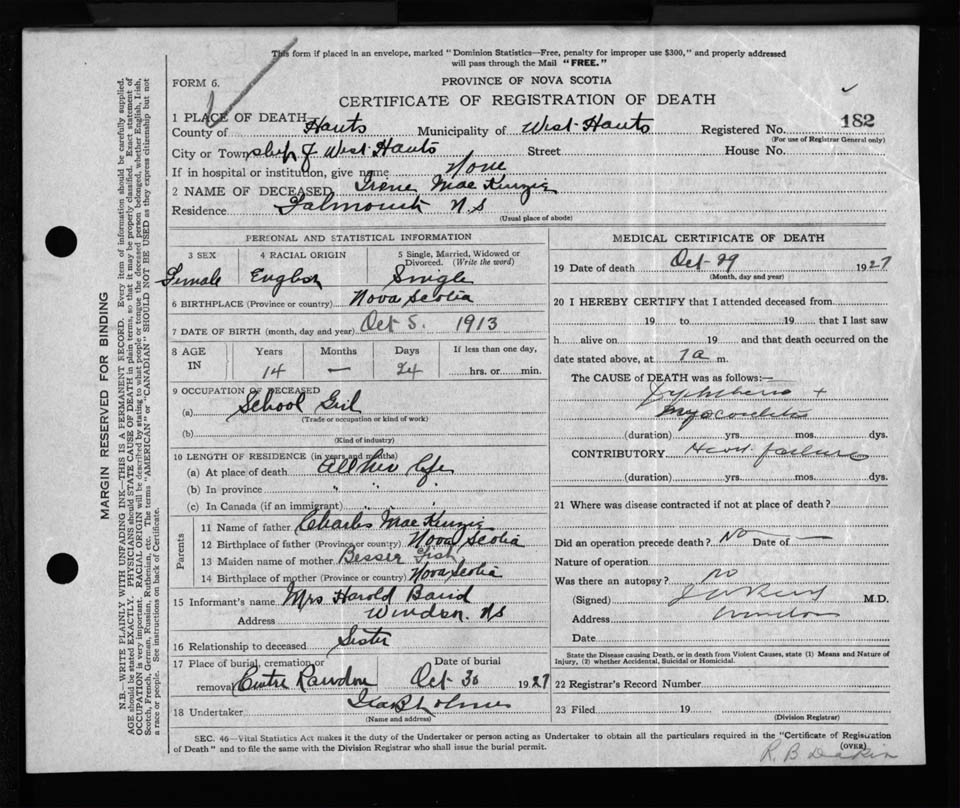 This form if placed in an envelope, marked "Dominion Statistics—Free, penalty for improper use $300," and properly addressed
will pass through the Mail "FREE."
FORM 6.
PROVINCE OF NOVA SCOTIA
CERTIFICATE OF REGISTRATION OF DEATH
1 PLACE OF DEATH
County of Hants Municipality of West Hants Registered No. 182
(For use of Registrar General only)
City or Town ship of West Hants Street House No.
If in hospital or institution, give name None
2 NAME OF DECEASED Irene MacKenzie
Residence Falmouth N.S
(Usual place of abode)
PERSONAL AND STATISTICAL INFORMATION
3 SEX 4 RACIAL ORIGIN 5 Single, Married, Widowed or
Divorced. (Write the word)
Female English Single
6 BIRTHPLACE (Province or country) Nova Scotia
7 DATE OF BIRTH (month, day and year) Oct 5. 1913
8 AGE IN Years Months Days If less than one day,
14 — 24 hrs. or min.
9 OCCUPATION OF DECEASED
(a) School Girl
(Trade or occupation or kind of work)
(b)
(Kind of industry)
10 LENGTH OF RESIDENCE (in years and months)
(a) At place of death All her life
(b) In province " " "
(c) In Canada (if an immigrant)
Parents
11 Name of father Charles MacKenzie
12 Birthplace of father (Province or country) Nova Scotia
13 Maiden name of mother Besser
14 Birthplace of mother (Province or country) Nova Scotia
15 Informant's name Mrs Harold Baird
Address Windsor. N.S
16 Relationship to deceased Sister
17 Place of burial, cremation or Date of burial
removal Centre Rawdon Oct 30 1927
18 Undertaker Holmes
(Name and address)
MEDICAL CERTIFICATE OF DEATH
19 Date of death Oct 29 1927
(Month, day and year)
20 I HEREBY CERTIFY that I attended deceased from
19 to 19 that I last saw
h alive on 19 and that death occurred on the
date stated above, at 7 a m.
The CAUSE of DEATH was as follows:—
Diphtheria +
Myocarditis
(duration) yrs. mos. dys.
CONTRIBUTORY Heart failure
(duration) yrs. mos. dys.
21 Where was disease contracted if not at place of death?
Did an operation precede death? No Date of —
Nature of operation
Was there an autopsy? no
(Signed) M.D.
Address Windsor
Date
State the Disease causing Death, or in death from Violent Causes, state (1) Means and Nature of
Injury, (2) whether Accidental, Suicidal or Homicidal.
22 Registrar's Record Number
23 Filed 19
(Division Registrar)
SEC. 46—Vital Statistics Act makes it the duty of the Undertaker or person acting as Undertaker to obtain all the particulars required in the "Certificate of Registration
of Death" and to file the same with the Division Registrar who shall issue the burial permit.
(OVER)
R. B. Dakin
MARGIN RESERVED FOR BINDING
N.B.—WRITE PLAINLY WITH UNFADING INK—THIS IS A PERMANENT RECORD. Every item of information should be carefully supplied.
AGE should be stated EXACTLY. PHYSICIANS should STATE CAUSE OF DEATH in plain terms, so that it may be properly classified. Exact statement of
OCCUPATION is very important. RACIAL ORIGIN will be described by stating to what people or tongue the deceased person belonged, whether English, Irish,
Scotch, French, German, Russian, Ruthenian, etc. The terms "AMERICAN" or "CANADIAN" SHOULD NOT BE USED as they express citizenship but not
a race or people. See instructions on back of Certificate.